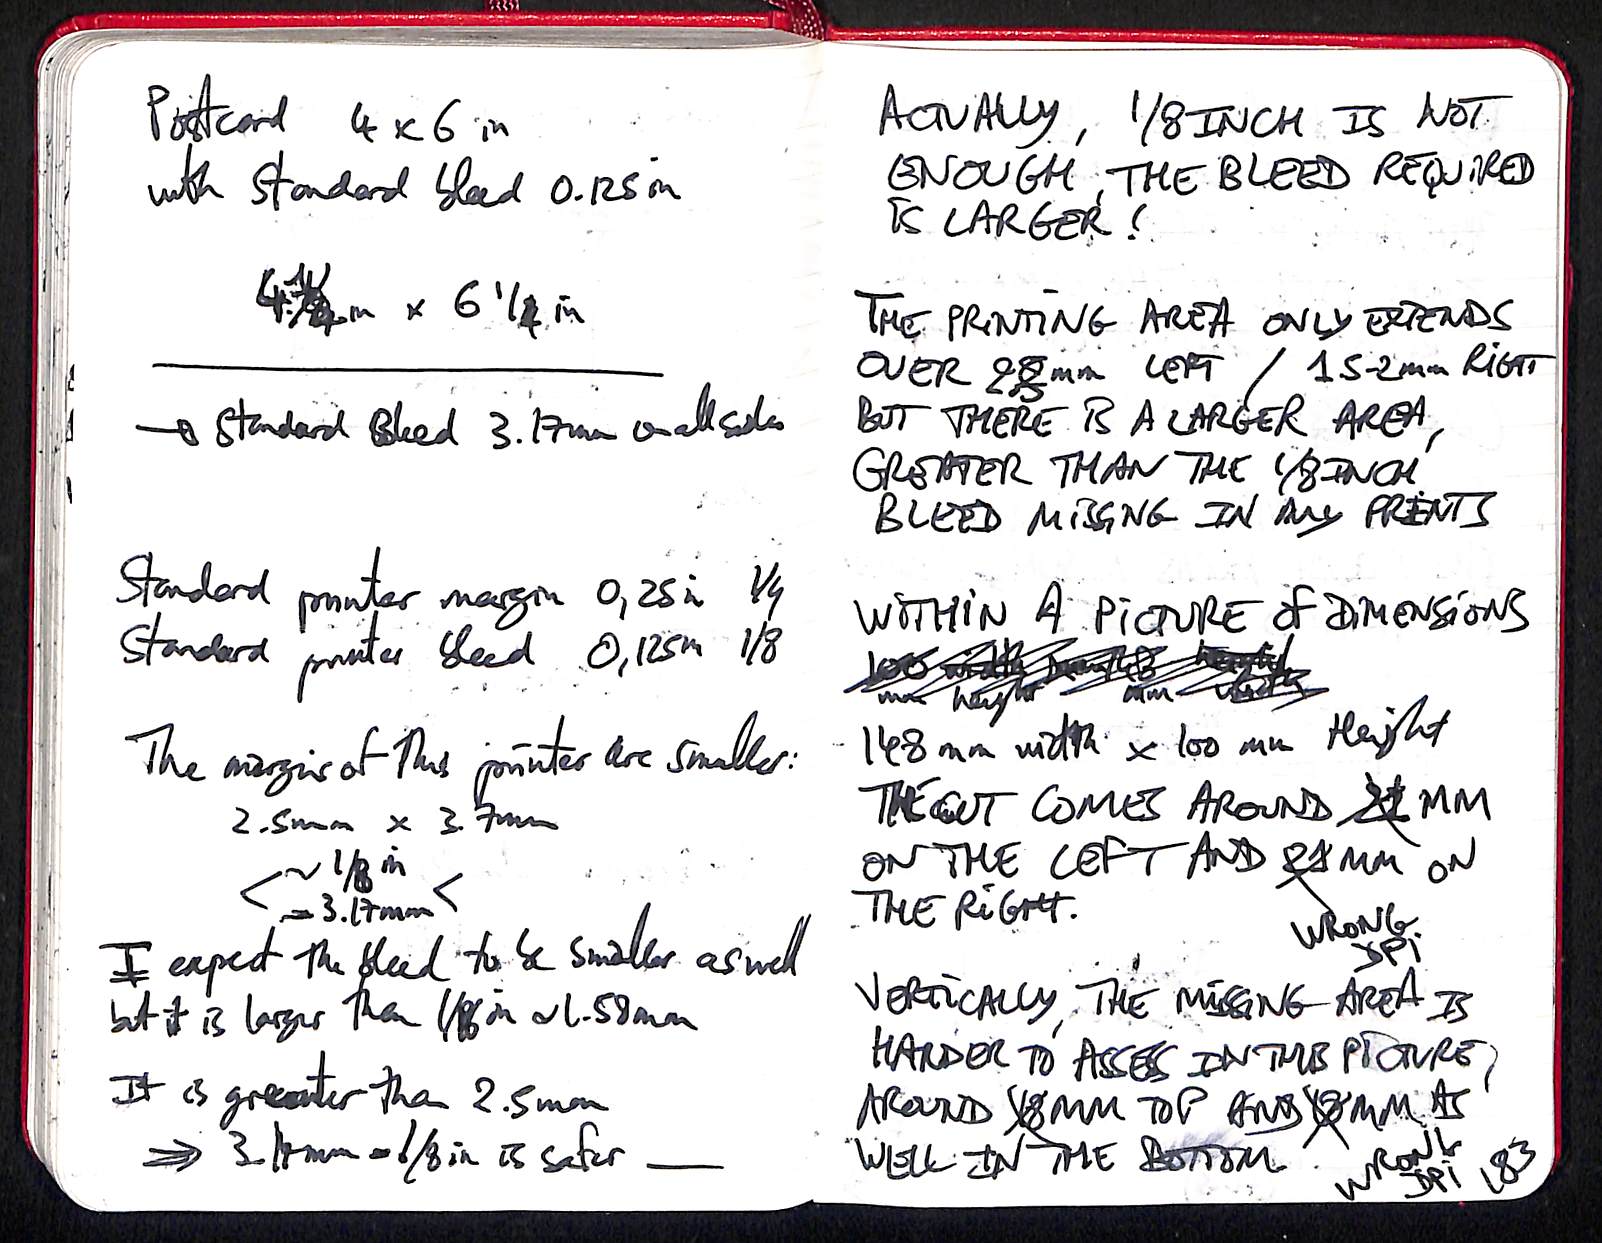 Postcard 4 x 6 in
with standard bleed 0.125 in
4 1/4 in x 6 1/4 in
→ Standard Bleed 3.17mm on all sides
Standard printer margin 0,25 in 1/4
Standard printer bleed 0,125in 1/8
The margins of this printer are smaller:
2.5mm x 3.7mm
~ 1/8 in
< = 3.17mm <
I expect the bleed to be smaller as well
but it is larger than in ~1.58mm
It is greater than 2.5mm
⇒ 3.17mm = 1/8 in is safer
ACTUALLY, 1/8 INCH IS NOT
ENOUGH, THE BLEED REQUIRED
IS LARGER!
THE PRINTING AREA ONLY EXTENDS
OVER mm LEFT / 1.5-2mm RIGHT
BUT THERE IS A LARGER AREA,
GREATER THAN THE 1/8 INCH
BLEED MISSING IN MY PRINTS
WITHIN A PICTURE OF DIMENSIONS
100 width mm height
mm height mm width
148 mm width x 100 mm Height
THE CUT COMES AROUND MM
ON THE LEFT AND 21 MM ON
THE RIGHT.
WRONG
DPI
VERTICALLY, THE MISSING AREA IS
HARDER TO ASSESS IN THIS PICTURE,
AROUND 18 MM TOP AND 18 MM AS
WELL IN THE BOTTOM.
WRONG
DPI
183